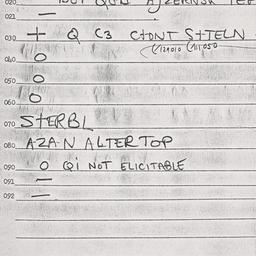 020
021 —
030 + Q C3 CTONT STTELN
040 O
050 O
060 O
070 STERBL
080 AZAN ALTER TOP
090 O Qi NOT ELICITABLE
091 —
092 —